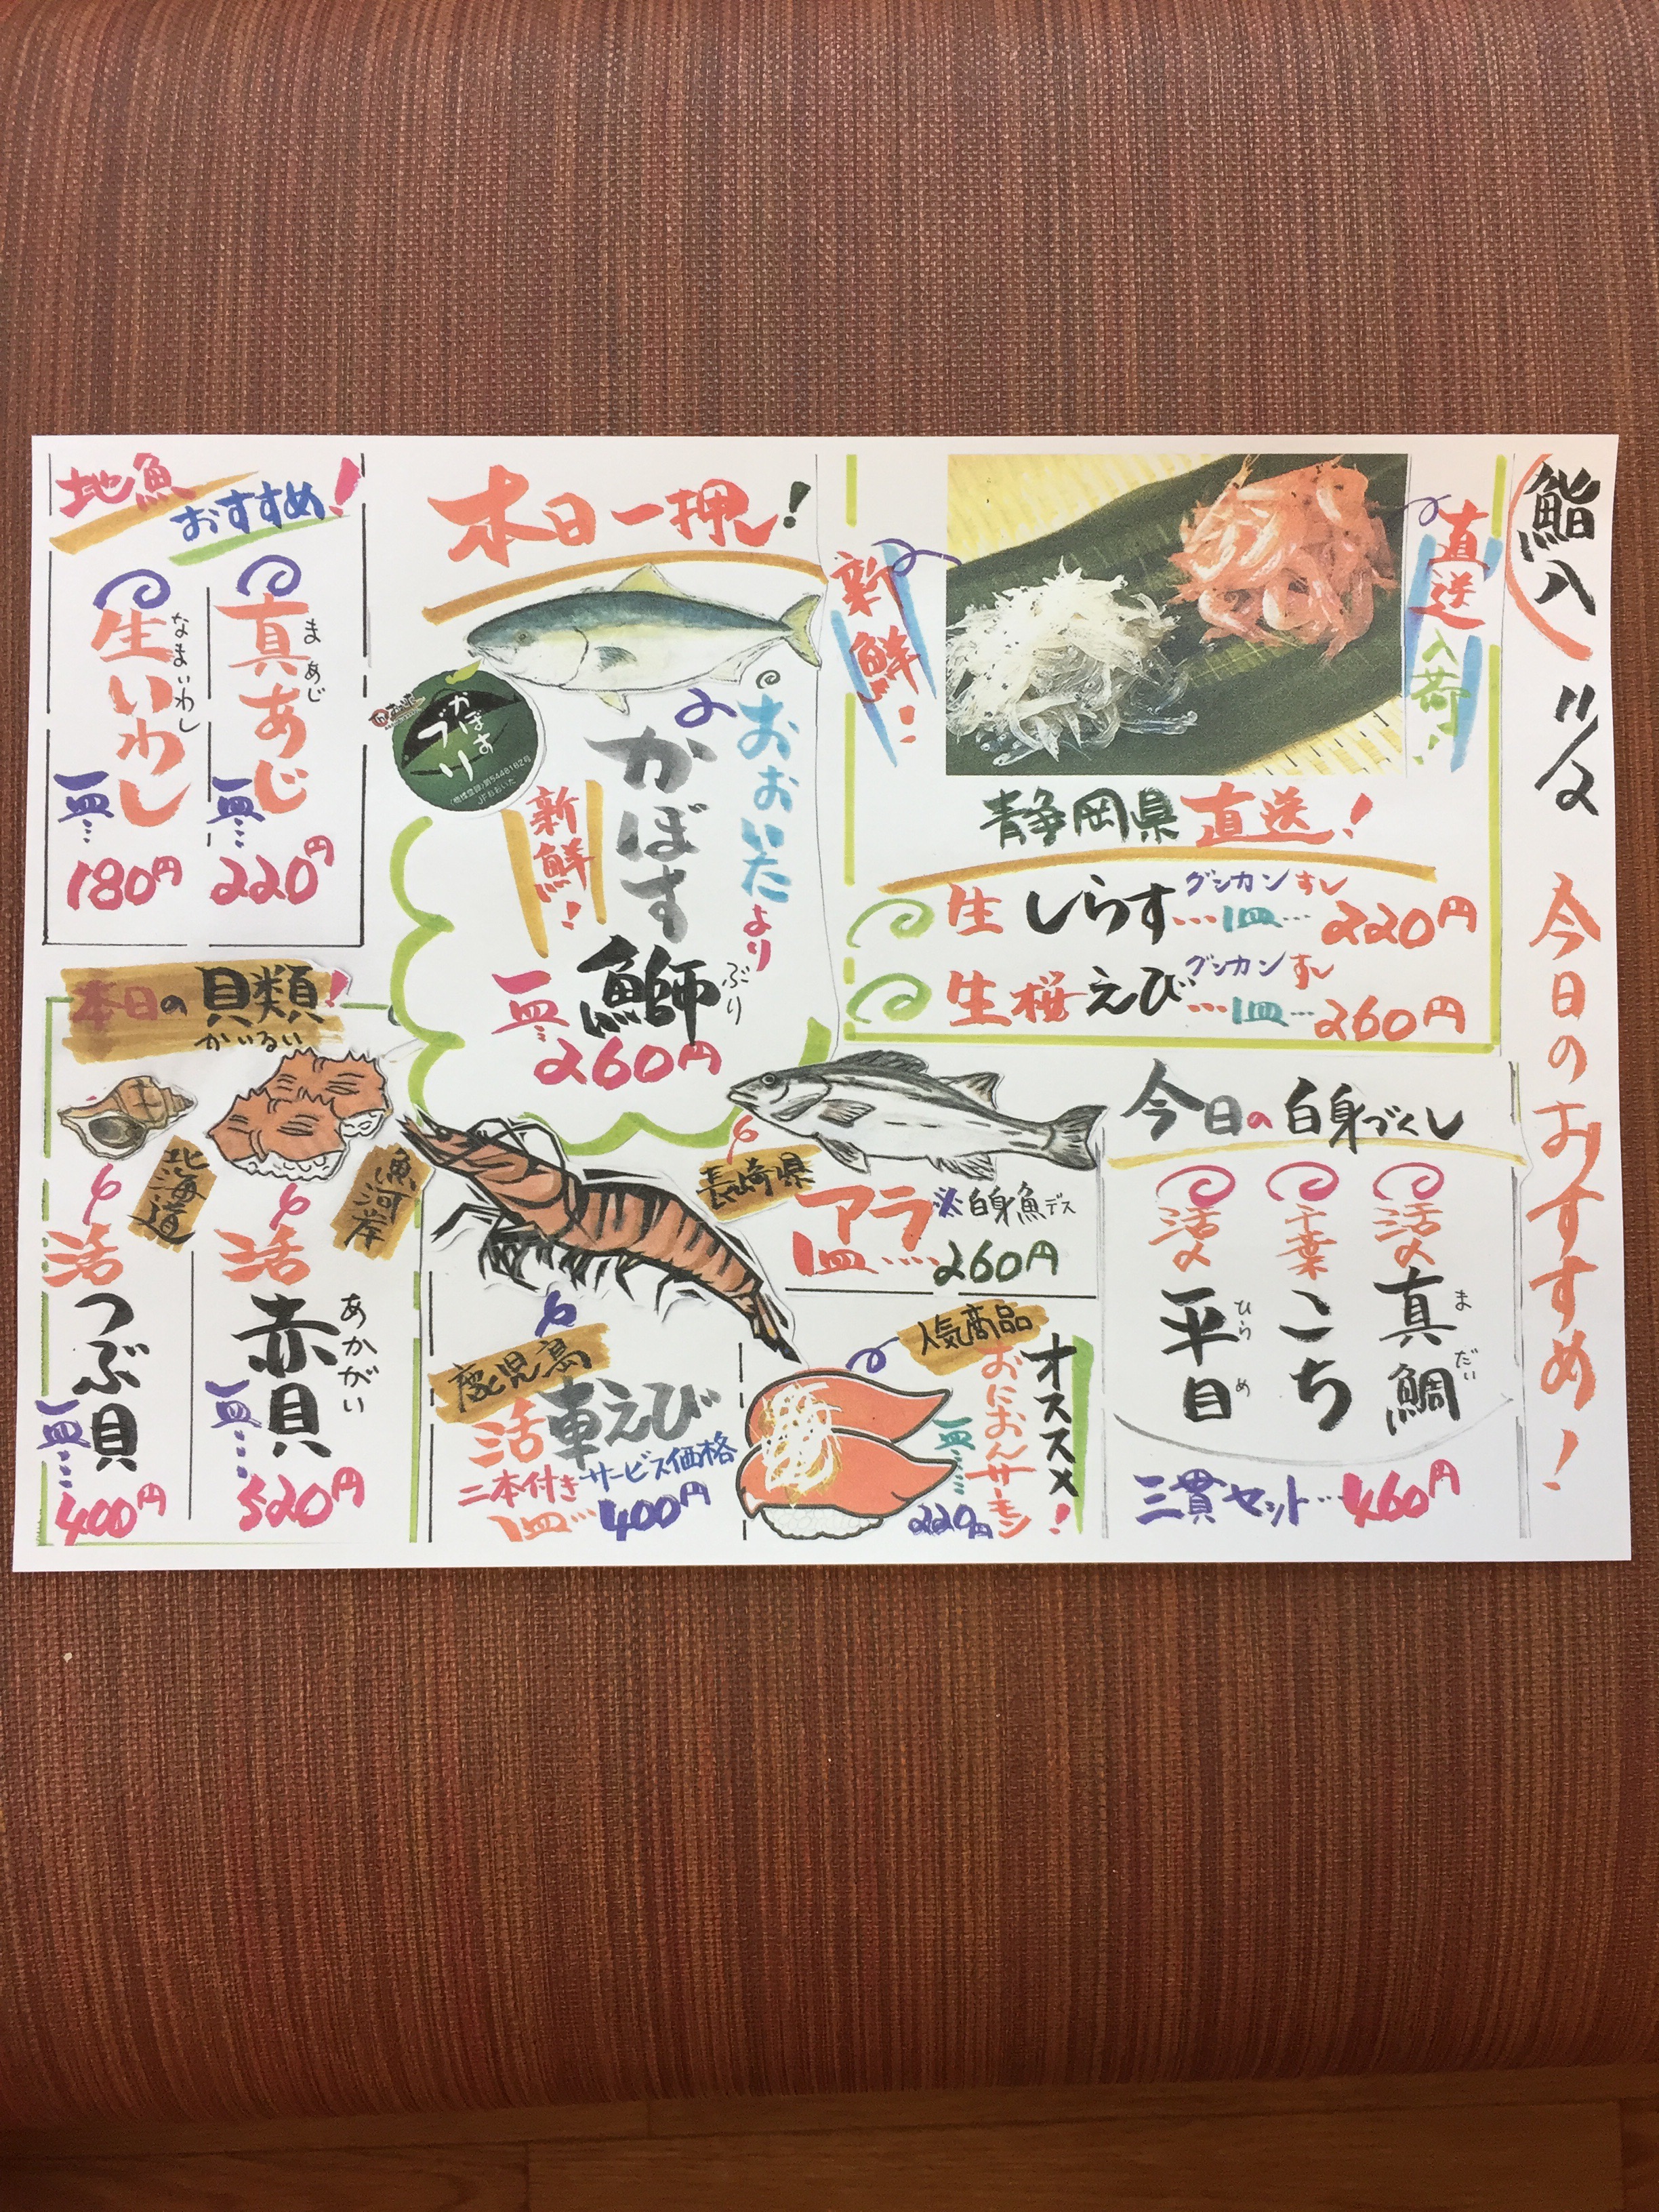 鮨
今日のおすすめ!
直送
入荷!
新鮮!
青争岡県直送!
生しらすグンカンすし
…1皿…220円
生桜えびグンカンすし
…1皿…260円
本日一押し!
おおいたより
かぼす
鰤
ぶり
新鮮!
一皿…
260円
かぼす
ブリ
JFおおいた
地魚
おすすめ!
真あじ
まあじ
一皿…
220円
生いわし
なまいわし
一皿…
180円
今日の白身づくし
活〆
真鯛
まだい
千葉
こち
活〆
平目
ひらめ
三貫セット…460円
長崎県
アラ
※白身魚デス
1皿……260円
人気商品
オススメ!
おにおんサーモン
一皿……
220円
鹿児島
活車えび
二本付きサービス価格
1皿…400円
本日の貝類!
かいるい
魚河岸
活
赤貝
あかがい
一皿…
520円
北海道
活
つぶ貝
一皿…
400円